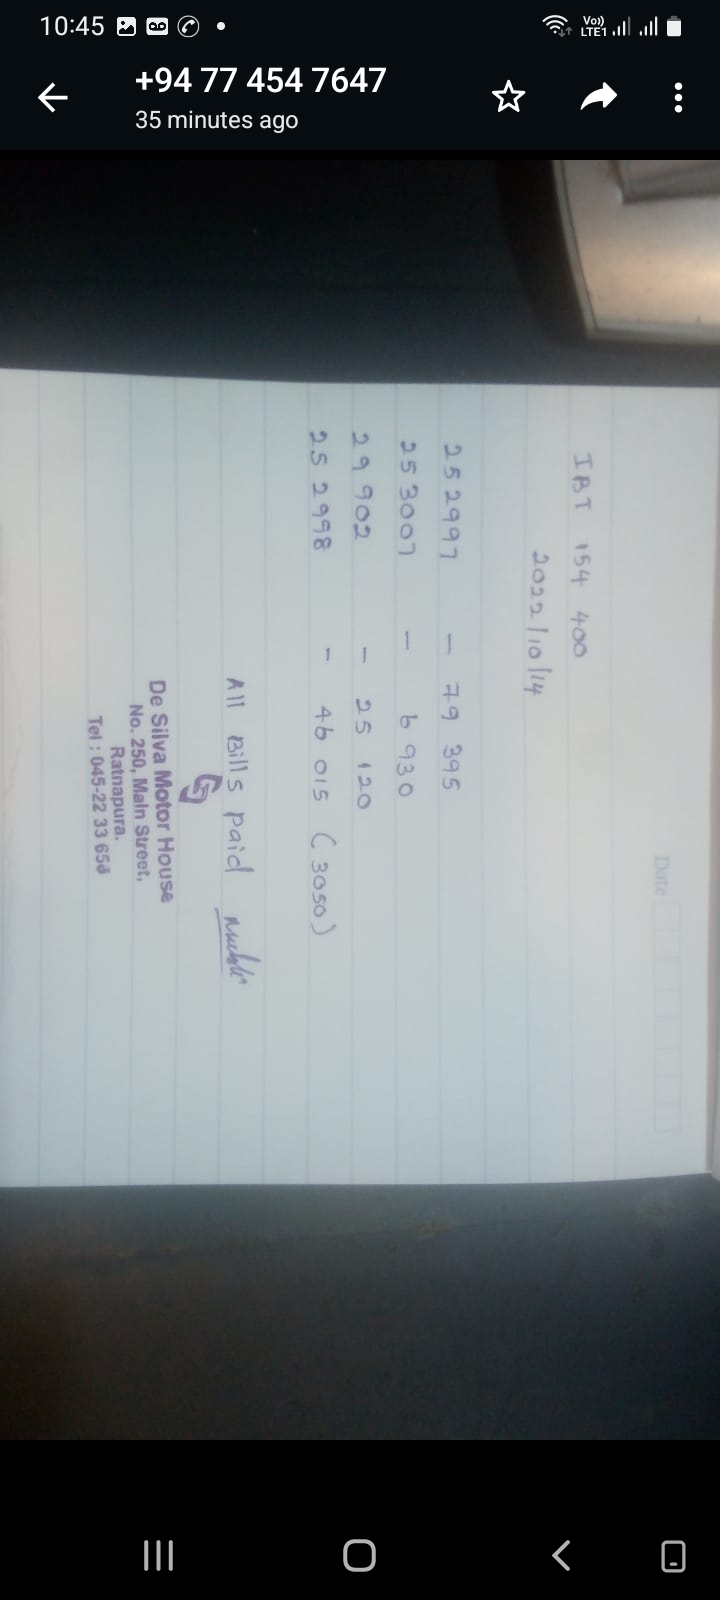 10:45
Vo)) LTE1
+94 77 454 7647
35 minutes ago
Date
IBT 154 400
2022/10/14
252997 – 79 395
253007 – 6 930
29902 – 25 120
252998 – 46 015 (3050)
All Bills paid
De Silva Motor House
No. 250, Main Street,
Ratnapura.
Tel : 045-22 33 653